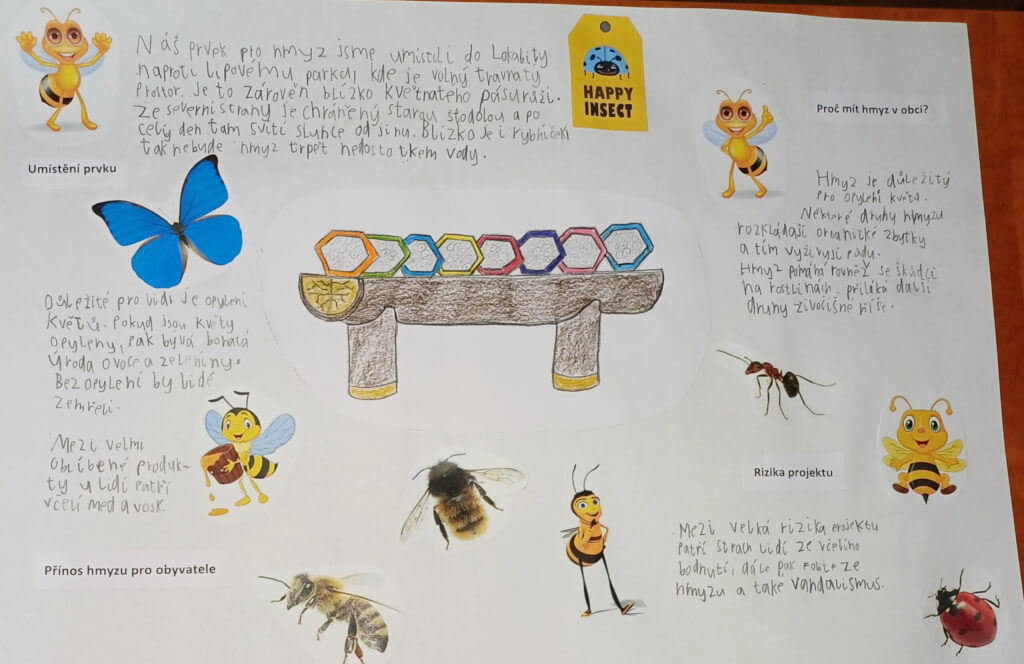 Náš prvek pro hmyz jsme umístili do Lokality
naproti lipovému parku, kde je volný travnatý
prostor. Je to zároveň blízko květnatého pásu růží.
Ze severní strany je chráněný starou stodolou a po
celý den tam svítí slunce od jihu. Blízko je i rybníček
tak nebude hmyz trpět nedostatkem vody.
Umístění prvku
HAPPY
INSECT
Proč mít hmyz v obci?
Hmyz je důležitý
pro opylení květů.
Některé druhy hmyzu
rozkládají organické zbytky
a tím vyživují půdu.
Hmyz pomáhá rovněž se škůdci
na rostlinách, přiláká další
druhy živočišné říše.
Důležité pro lidi je opylení
květů. Pokud jsou květy
opyleny, pak bývá bohatá
úroda ovoce a zeleniny.
Bez opylení by lidé
zemřeli.
Mezi velmi
oblíbené produk-
ty u lidí patří
včelí med a vosk.
Přínos hmyzu pro obyvatele
Rizika projektu
Mezi velká rizika projektu
patří strach lidí ze včelího
bodnutí, dále pak fobie ze
hmyzu a také vandalismus.